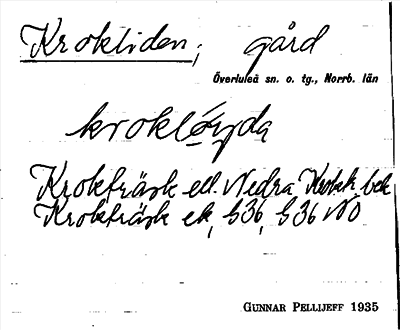 Krokliden, gård
Överluleå sn. o. tg., Norrb. län
krokløyda
Krokträsk ell. Nedra Krokk bek
Krokträsk ek, G36, G36 NO
GUNNAR PELLIJEFF 1935